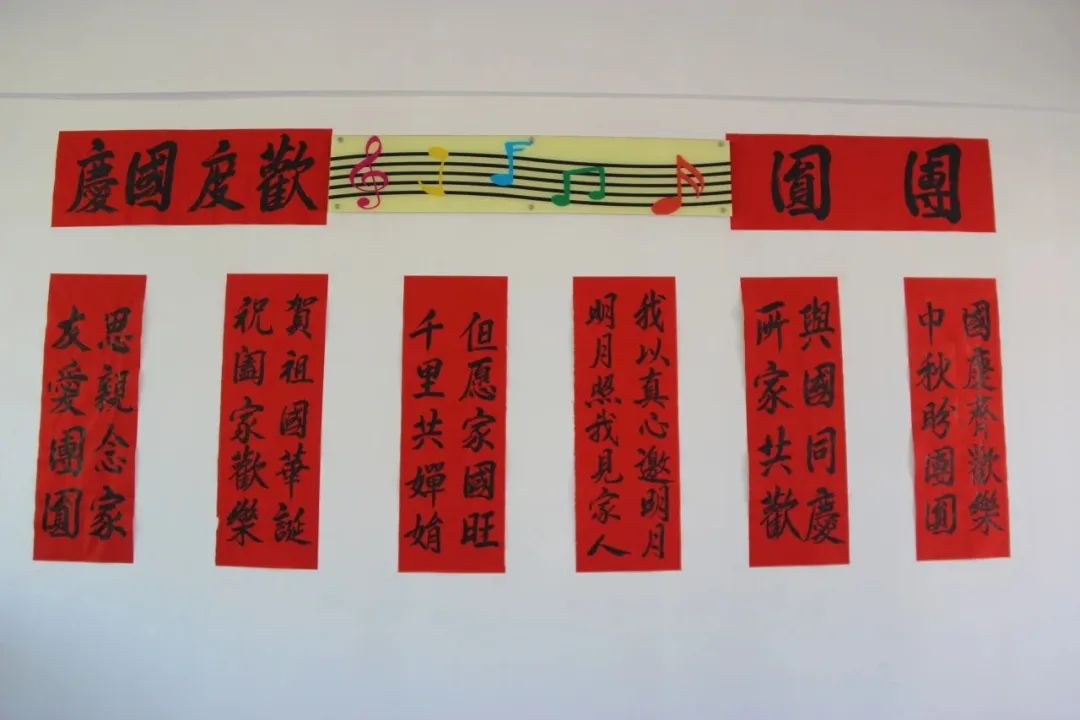 團圓
歡度國慶
國慶齊歡樂
中秋盼團圓
與國同慶
所家共歡
我以真心邀明月
明月照我見家人
但愿家國旺
千里共嬋娟
賀祖國華誕
祝闔家歡樂
思親念家
友愛團圓